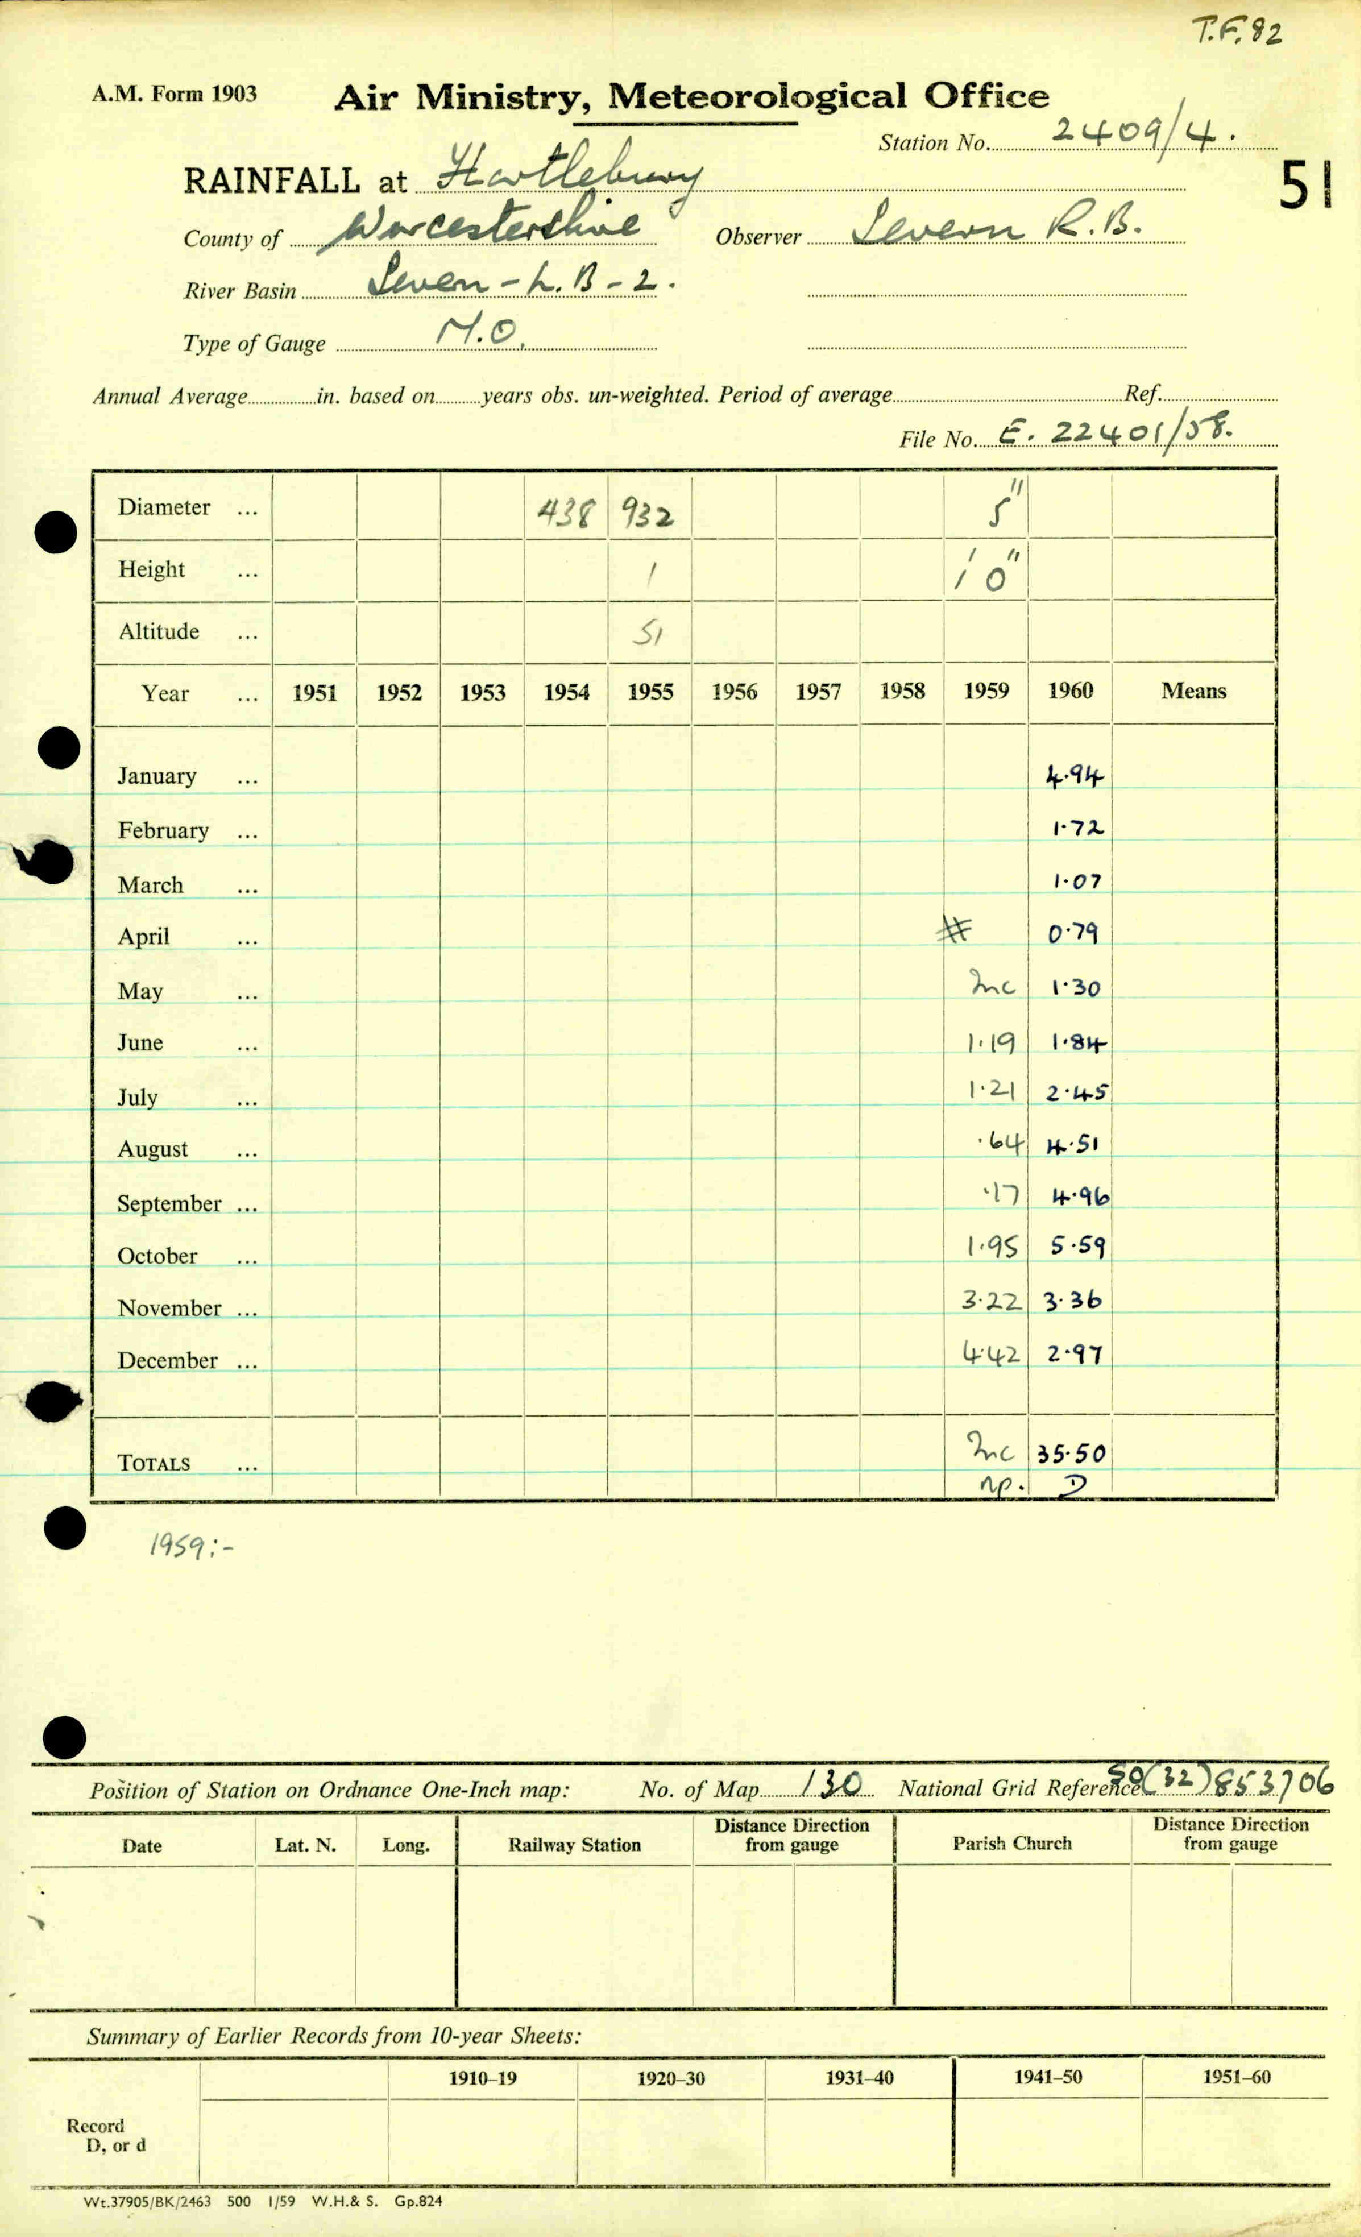 T.F. 82
A.M. Form 1903 Air Ministry, Meteorological Office
Station No. 2409/4.
RAINFALL at Hartlebury 51
County of Worcestershire Observer Severn R.B.
River Basin Severn - L.B - 2.
Type of Gauge M.O.
Annual Average in. based on years obs. un-weighted. Period of average Ref.
File No. E. 22401/58.
Diameter ... 438 932 5"
Height ... 1 1' 0"
Altitude ... 51
Year ... 1951 1952 1953 1954 1955 1956 1957 1958 1959 1960 Means
January ... 4.94
February ... 1.72
March ... 1.07
April ... # 0.79
May ... Inc 1.30
June ... 1.19 1.84
July ... 1.21 2.45
August ... .64 4.51
September ... .17 4.96
October ... 1.95 5.59
November ... 3.22 3.36
December ... 4.42 2.97
TOTALS ... Inc 35.50
np. D
1959:-
Position of Station on Ordnance One-Inch map: No. of Map 130 National Grid Reference SO(32)853706
Date Lat. N. Long. Railway Station Distance Direction from gauge Parish Church Distance Direction from gauge
Summary of Earlier Records from 10-year Sheets:
1910-19 1920-30 1931-40 1941-50 1951-60
Record
D, or d
Wt.37905/BK/2463 500 1/59 W.H.& S. Gp.824